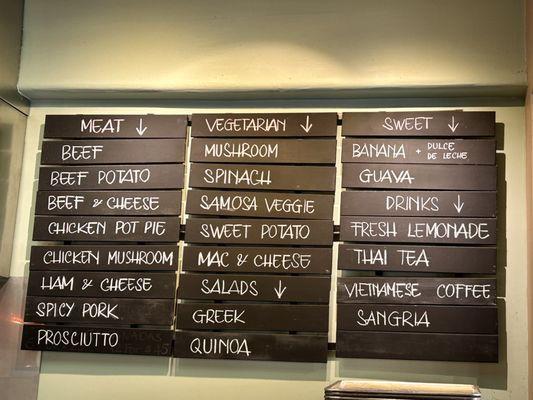 MEAT ↓
BEEF
BEEF POTATO
BEEF & CHEESE
CHICKEN POT PIE
CHICKEN MUSHROOM
HAM & CHEESE
SPICY PORK
PROSCIUTTO
VEGETARIAN ↓
MUSHROOM
SPINACH
SAMOSA VEGGIE
SWEET POTATO
MAC & CHEESE
SALADS ↓
GREEK
QUINOA
SWEET ↓
BANANA + DULCE DE LECHE
GUAVA
DRINKS ↓
FRESH LEMONADE
THAI TEA
VIETNAMESE COFFEE
SANGRIA